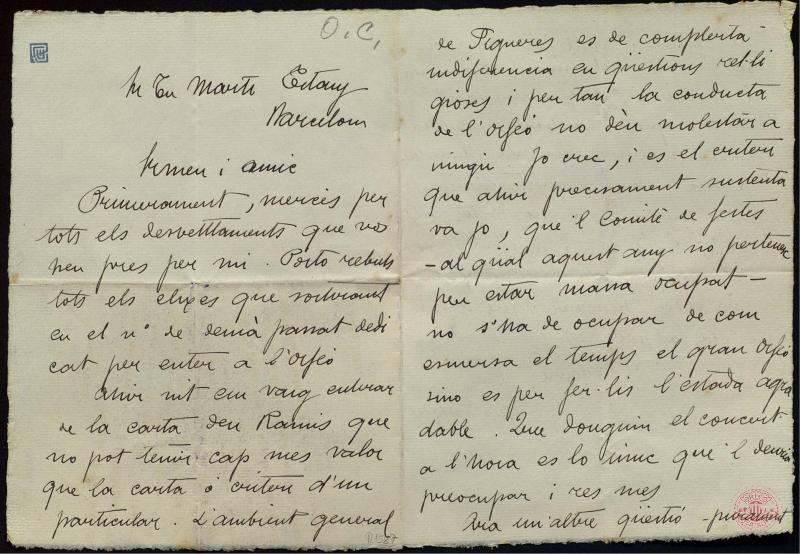 O.C.
Sr En Martí Estany
Barcelona
Primerament, mercès per
tots els desvetllaments que vos
heu pres per mi. Porto rebuts
tots els clixés que sortirant
en el nº de demà passat dedi
cat per enter a l'Orfeó
Ahir nit em vaig enterar
de la carta den Ramis que
no pot tenir cap mes valor
que la carta ó criteri d'un
particular. L'ambient general
de Figueres es de complerta
indiferencia en qüestions rel·li
gioses i per tan la conducta
de l'Orfeó no dèu molestàr a
ningú Jo crec, i es el criteri
que ahir precisament sustenta
va jo, que'l Comitè de festes
-al qüal aquest any no pertenesc
per estar massa ocupat-
no s'ha de ocupar de com
esmersa el temps el gran Orfeó
sino es per fer-lis l'estada agra
dable. Que donguin el concert
a l'hora es lo únic que'l deuria
preocupar i res mes
una un'altre qüestió -purament